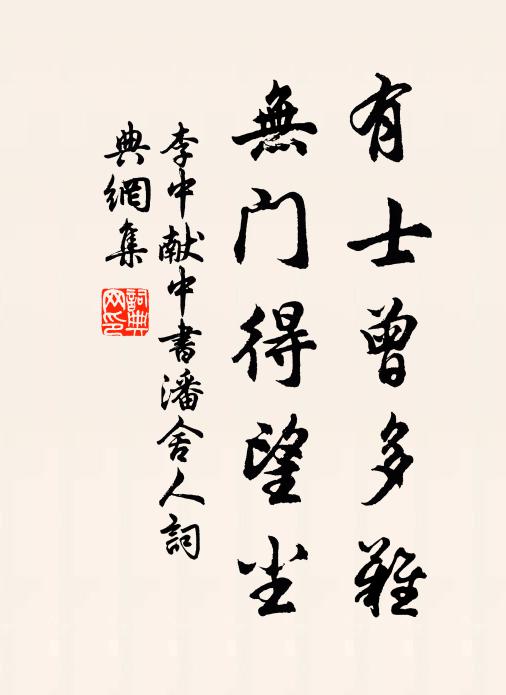 有士曾多難
無門得望尘
李中献中書潘舍人詞
典網集
詞典
网印